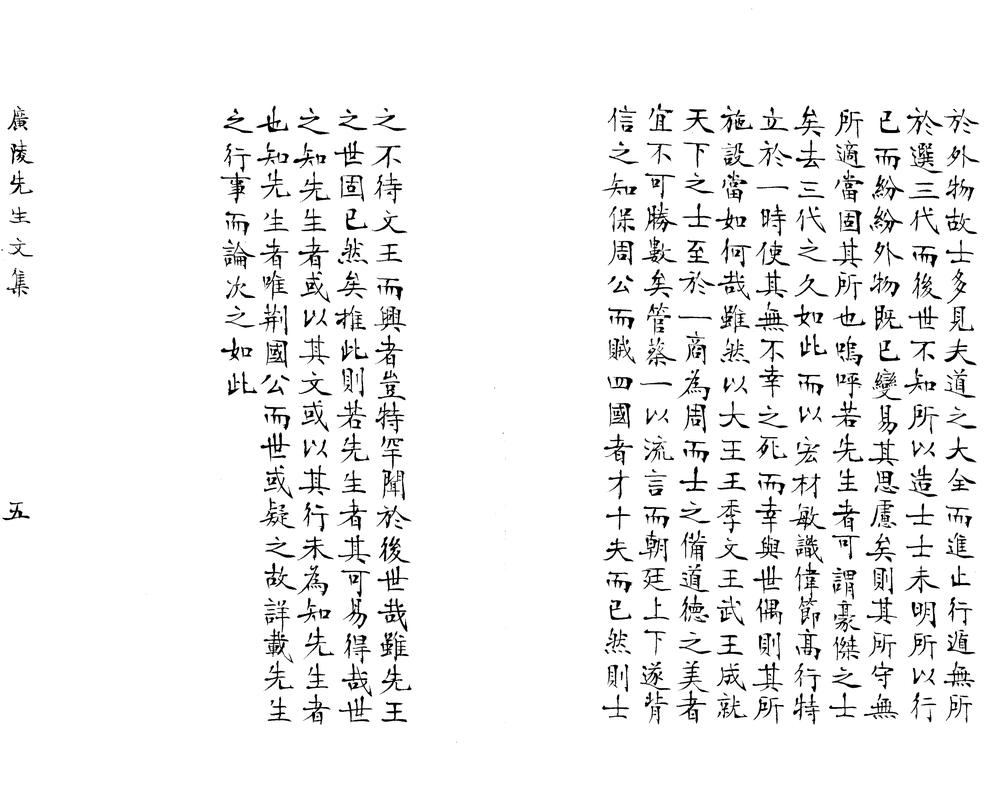 於外物故士多見夫道之大全而進止行遁無所
於選三代而後世不知所以造士士未明所以行
已而紛紛外物既已變易其思慮矣則其所守無
所適當固其所也嗚呼若先生者可謂豪傑之士
矣去三代之久如此而以宏材敏識偉節高行特
立於一時使其無不幸之死而幸與世偶則其所
施設當如何哉雖然以大王王季文王武王成就
天下之士至於一商為周而士之備道德之美者
宜不可勝數矣管蔡一以流言而朝廷上下遂背
信之知保周公而賊四國者才十夫而已然則士
之不待文王而興者豈特罕聞於後世哉雖先王
之世固已然矣推此則若先生者其可易得哉世
之知先生者或以其文或以其行未為知先生者
也知先生者唯荆國公而世或疑之故詳載先生
之行事而論次之如此
廣陵先生文集
五